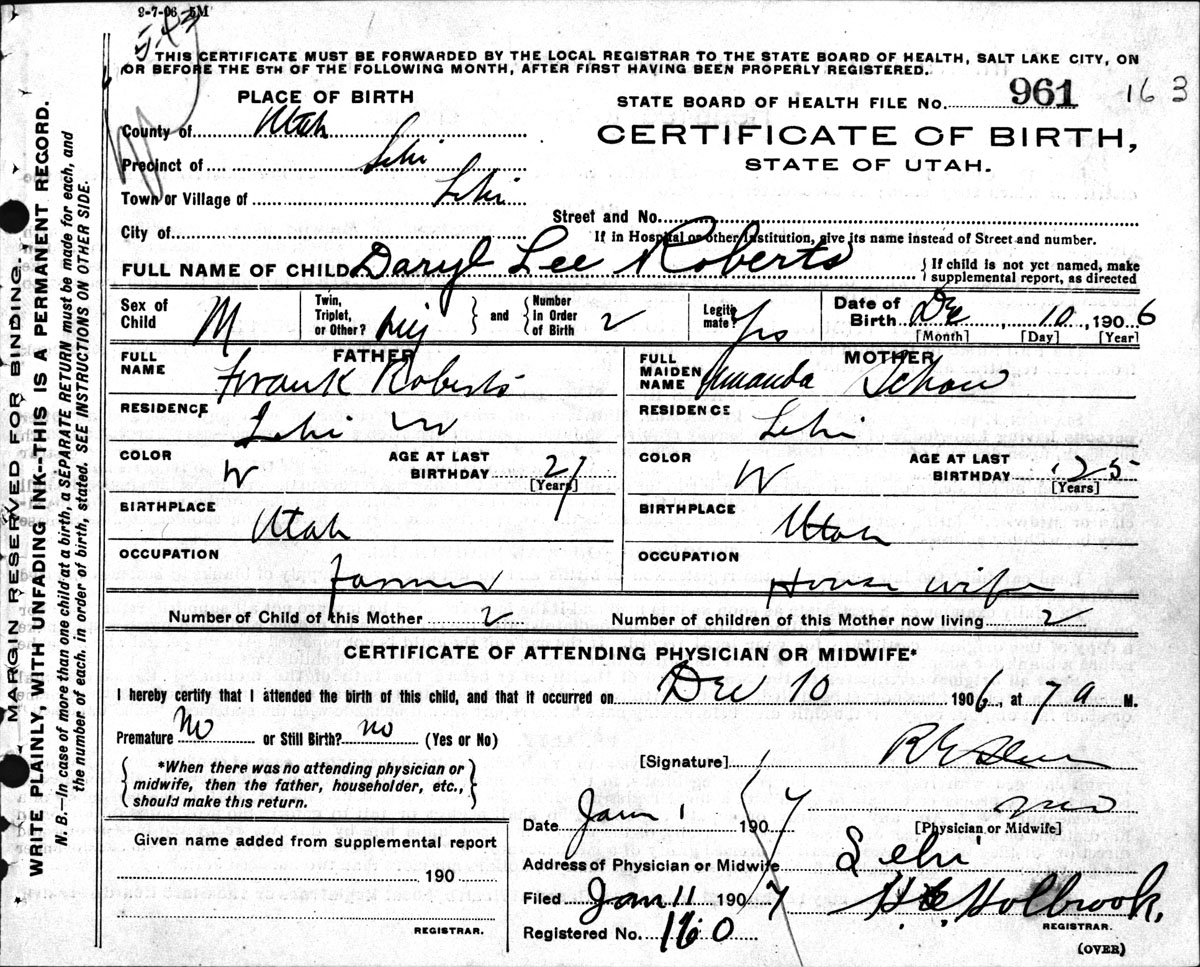 9-7-06 5M
THIS CERTIFICATE MUST BE FORWARDED BY THE LOCAL REGISTRAR TO THE STATE BOARD OF HEALTH, SALT LAKE CITY, ON
OR BEFORE THE 5TH OF THE FOLLOWING MONTH, AFTER FIRST HAVING BEEN PROPERLY REGISTERED.
PLACE OF BIRTH
STATE BOARD OF HEALTH FILE No. 961 163
County of Utah
CERTIFICATE OF BIRTH,
STATE OF UTAH.
Precinct of Lehi
Town or Village of Lehi
Street and No.
City of
If in Hospital or other Institution, give its name instead of Street and number.
FULL NAME OF CHILD Daryl Lee Roberts
{ If child is not yet named, make
supplemental report, as directed
Sex of Child M
Twin, Triplet, or Other?
and
Number in Order of Birth 2
Legitimate? Yes
Date of Birth Dec, 10, 1906
[Month] [Day] [Year]
FATHER
FULL NAME Frank Roberts
RESIDENCE Lehi
COLOR W
AGE AT LAST BIRTHDAY 27
[Years]
BIRTHPLACE Utah
OCCUPATION farmer
MOTHER
FULL MAIDEN NAME Amanda Schow
RESIDENCE Lehi
COLOR W
AGE AT LAST BIRTHDAY 25
[Years]
BIRTHPLACE Utah
OCCUPATION House wife
Number of Child of this Mother 2
Number of children of this Mother now living 2
CERTIFICATE OF ATTENDING PHYSICIAN OR MIDWIFE*
I hereby certify that I attended the birth of this child, and that it occurred on Dec 10 1906, at 7 a M.
Premature No or Still Birth? no (Yes or No)
*When there was no attending physician or
midwife, then the father, householder, etc.,
should make this return.
[Signature]
Date Jan 1 1907
[Physician or Midwife]
Given name added from supplemental report
190
REGISTRAR.
Address of Physician or Midwife Lehi
Filed Jan 11 1907
Holbrook.
REGISTRAR.
Registered No. 160
(OVER)
MARGIN RESERVED FOR BINDING.
WRITE PLAINLY, WITH UNFADING INK--THIS IS A PERMANENT RECORD.
N. B.--In case of more than one child at a birth, a SEPARATE RETURN must be made for each, and
the number of each, in order of birth, stated. SEE INSTRUCTIONS ON OTHER SIDE.